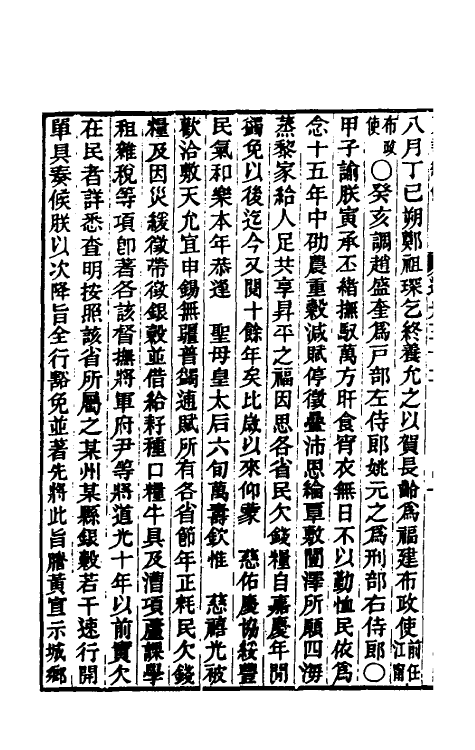 八月丁巳朔鄭祖琛乞終養允之以賀長齡爲福建布政使前任江甯
布政使○癸亥調趙盛奎爲戸部左侍郎姚元之爲刑部右侍郎○
甲子諭朕寅承丕緒撫馭萬方旰食宵衣無日不以勤恤民依爲
念十五年中劭農重穀減賦停徵疊沛恩綸覃敷闓澤所願四海
蒸黎家給人足共享昇平之福因思各省民欠錢糧自嘉慶年閒
蠲免以後迄今又閱十餘年矣比歲以來仰蒙 慈佑慶協綏豐
民氣和樂本年恭逢 聖母皇太后六旬萬壽欽惟 慈禧光被
歡洽敷天允宜申錫無疆普蠲逋賦所有各省節年正耗民欠錢
糧及因災緩徵帶徵銀穀並借給籽種口糧牛具及漕項蘆課學
租雜稅等項卽著各該督撫將軍府尹等將道光十年以前實欠
在民者詳悉查明按照該省所屬之某州某縣銀穀若干速行開
單具奏候朕以次降旨全行豁免並著先將此旨謄黃宣示城鄉